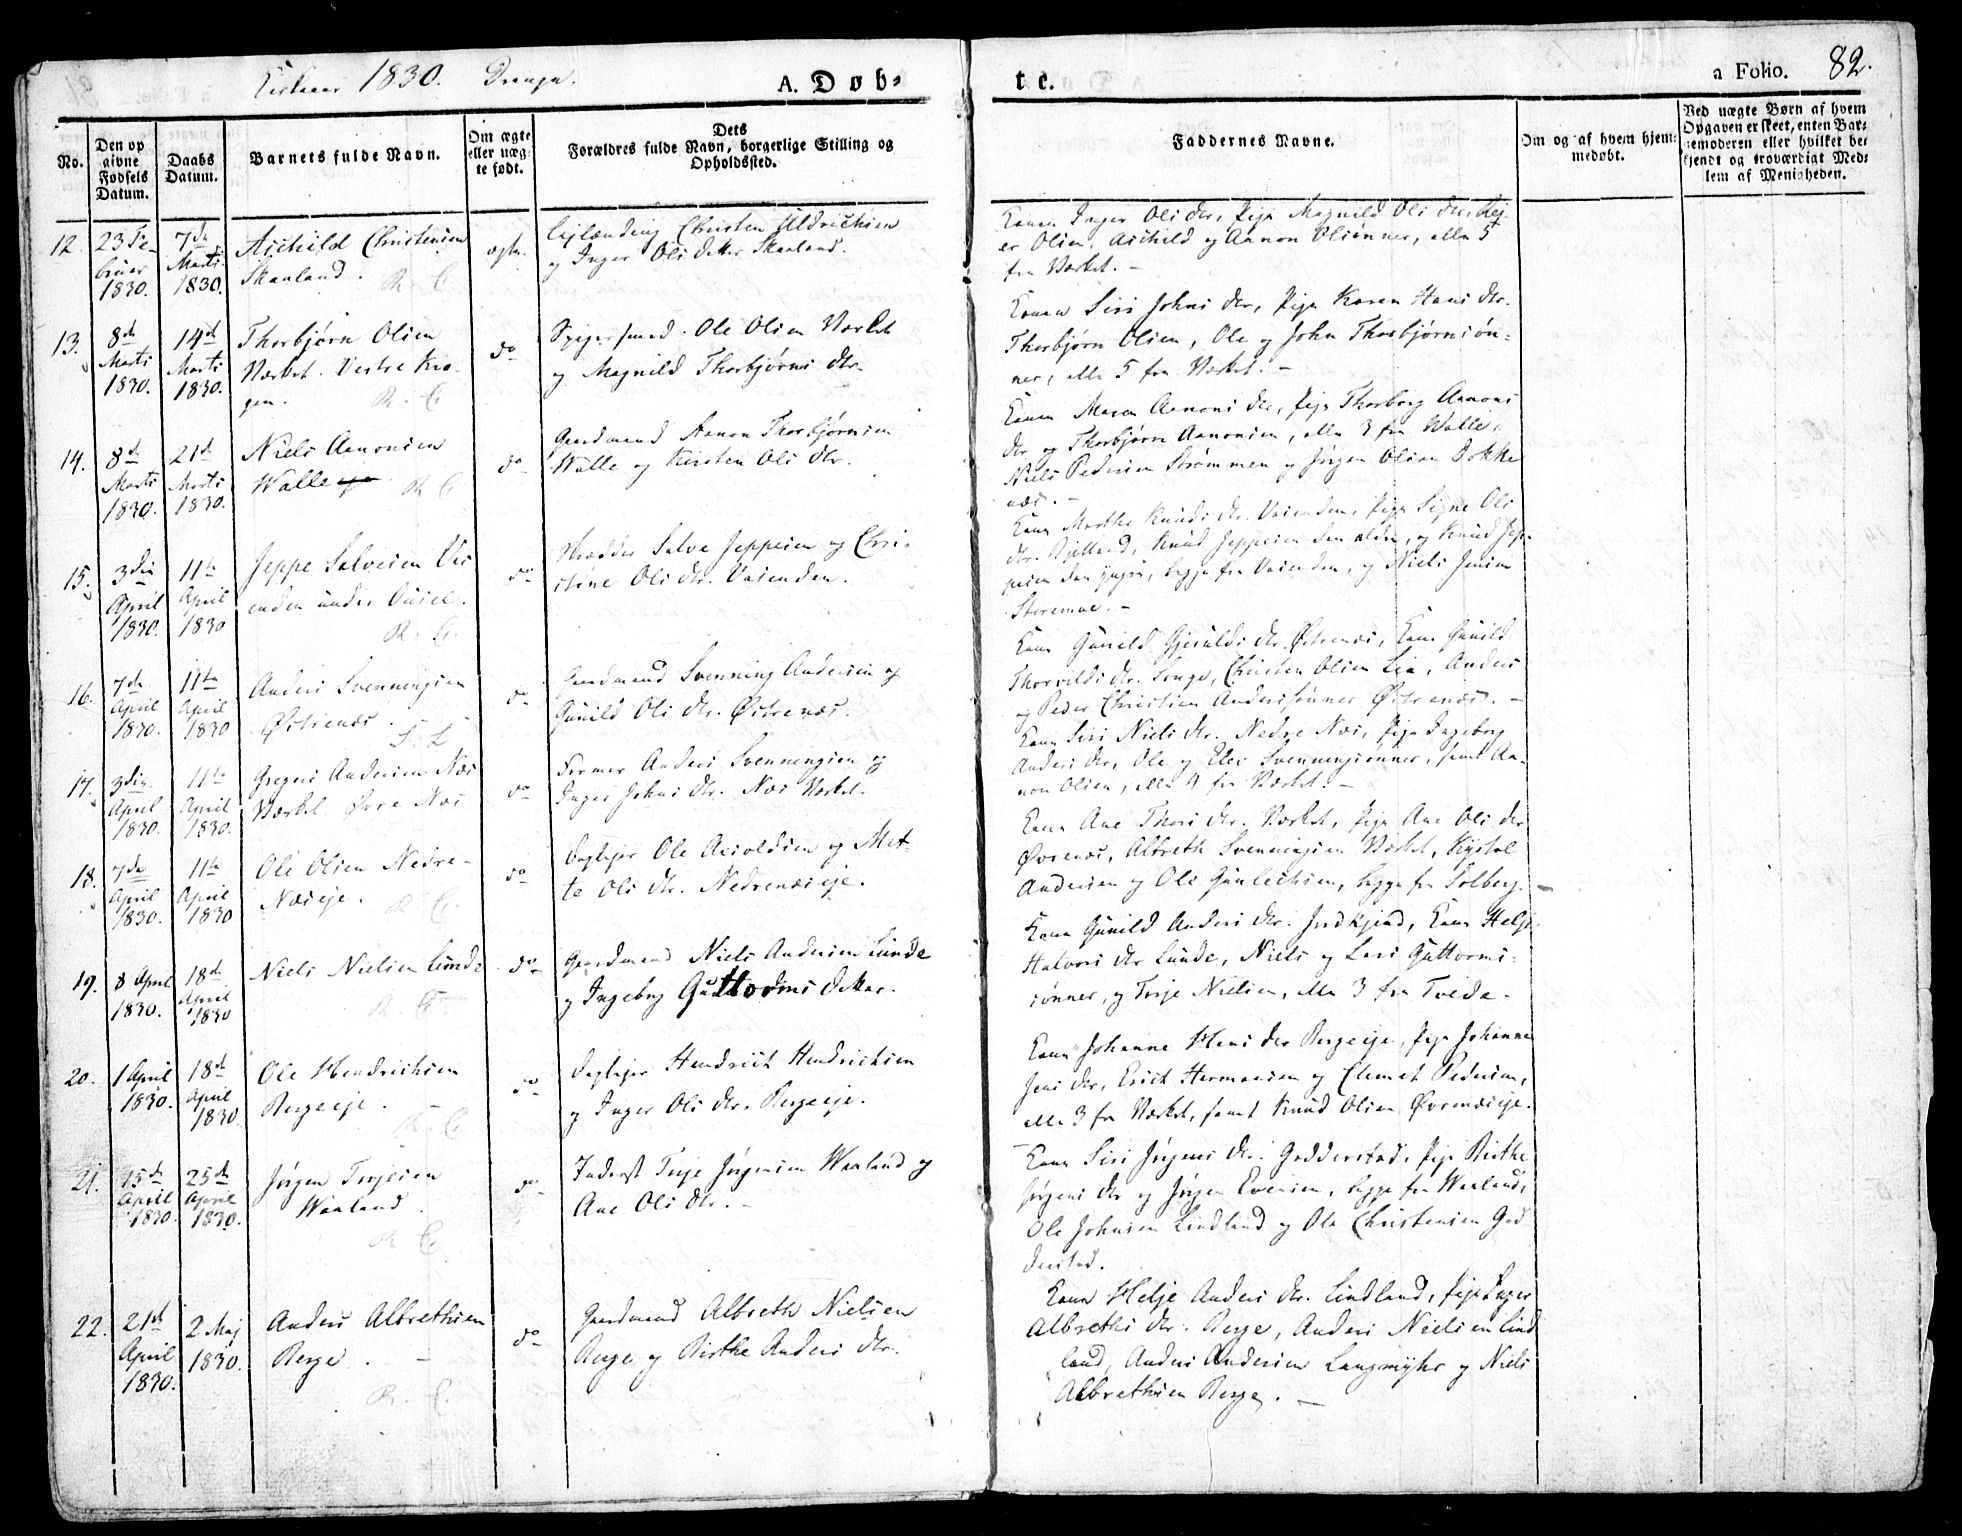 Kirkeaar 1830. Drenge.
A. Døb-
te.
a Folio. 82.
No.
Den op
givne
Fødsels
Datum.
Daabs
Datum.
Barnets fulde Navn.
Om ægte
eller uæg-
te født.
Dets
Forældres fulde Navn, borgerlige Stilling og
Opholdssted.
Faddernes Navne.
Om og af hvem hjem-
medøbt.
Ved uægte Børn af hvem
Opgaven er skeet, enten Bar-
nemoderen eller hvilket be-
kjendt og troværdigt Med-
lem af Menigheden.
12.
23 Fe-
bruar
1830.
7de
Marti
1830.
Christensen
Skaaland.
ægte.
Christen Uldrichsen
og Inger Olsdatter Skaaland.
Konen Inger Olsdtr, Pige Magnild Olsdtr,
er Olsen, og Aanon Olsønner, alle 5
fra Værket. -
13.
8de
Marti
1830.
14de
Marti
1830.
Thorbjørn Olsen
Værket. Vestre Kro-
gen.
do
Spigersmed Ole Olsen Værket
og Magnild Thorbjørns dtr.
Konen Siri Johns dtr, Pige Karen Hans dtr.
Thorbjørn Olsen, Ole og John Thorbjørnsøn-
ner, alle 5 fra Værket. -
14.
8de
Marti
1830.
21de
Marti
1830.
Niels Aanonsen
Walle
do
Gaardmand Aanon Thorbjørnsen
Walle og Kirsten Ols dtr.
Konen Maren Aanons dtr, Pige Thorborg Aanons
dtr og Thorbjørn Aanonsen, alle 3 fra Walle,
Niels Pedersen Strømmen og Jørgen Olsen Bokke
næs. -
15.
3die
April
1830.
11te
April
1830
Jeppe Salvesen Vas
enden under
do
Salve Jeppesen og Chri-
stine Ols dtr. Vasenden.
Kone Marthe Knuds dtr. Vasenden, Pige Signe Ols
dtr. Knud Jeppesen den ældre, og Knud Jep-
pesen den yngre, begge fra Vasenden, og Niels Jensen
Storemoe. -
16.
7de
April
1830.
11te
April
1830
Anders Svenningsen
Østrenæs.
do
Gaardmand Svenning Andersen og
Gunild Ols dtr. Østrenæs.
Kone Gunild dtr. Østrenæs, Kone Gunild
Thorvilds dtr. Songe, Christen Olsen Lia, Anders
og Peder Christian Anderssønner Østrenæs. -
17.
3die
April
1830.
11te
April
1830.
Gregers Andersen Næs
Værket Øvre Næs
do
Former Anders Svenningsen og
Inger Johns dtr. Næs Værket.
Kone Siri Niels dtr. Nedre Næs, Pige Ingeborg
Anders dtr, Ole og Elev Svenningsønner, samt Aa-
non Olsen, alle 4 fra Værket. -
18.
7de
April
1830.
11te
April
1830
Ole Olsen Nedre-
Næseje.
do
Daglejer Ole og Met-
te Ols dtr. Nedrenæseje.
Kone Ane Thors dtr. Værket, Pige Ane Ols dtr
Øvrenæs, Albreth Svenningsen Værket,
Andersen og Ole begge fra Solberg. -
19.
8 April
1830.
18de
April
1830
Niels Nielsen Lunde
do
Gaardmand Niels Andersen Lunde
og Ingeborg Guttorms datter.
Kone Gunild Anders dtr. Kone Helje
Halvors dtr Lunde, Niels og Lars Guttorms-
sønner, og Terje Nielsen, alle 3 fra Tvede.
20.
1 April
1830.
18de
April
1830
Ole Hendrichsen
Bergeeje.
do
Daglejer Hendrick Hendrichsen
og Inger Ols dtr. Bergeeje.
Kone Johanne Hans dtr Bergeeje, Pige Johanne
Jens dtr, Erich Hermansen og Clemet Pedersen,
alle 3 fra Værket, samt Knud Olsen Øvrenæseje.
21.
15de
April
1830
25de
April
1830.
Jørgen Terjesen
Waaland.
do
Inderst Terje Jørgensen Waaland og
Ane Ols dtr. -
Kone Siri Jørgens dtr. Godderstad, Pige Birthe
Jørgens dtr og Jørgen Evensen, begge fra Waaland,
Ole Johnsen Lindland og Ole Christensen God
derstad.
22.
21de
April
1830.
2 Maj
1830.
Anders Albrethsen
Berge. -
do
Gaardmand Albreth Nielsen
Berge og Birthe Anders dtr.
Kone Helje Anders dtr. Lindland, Pige Inger
Albreths dtr. Berge, Anders Nielsen Lind
land, Anders Andersen Langmyhr og Niels
Albrethsen Berge. -